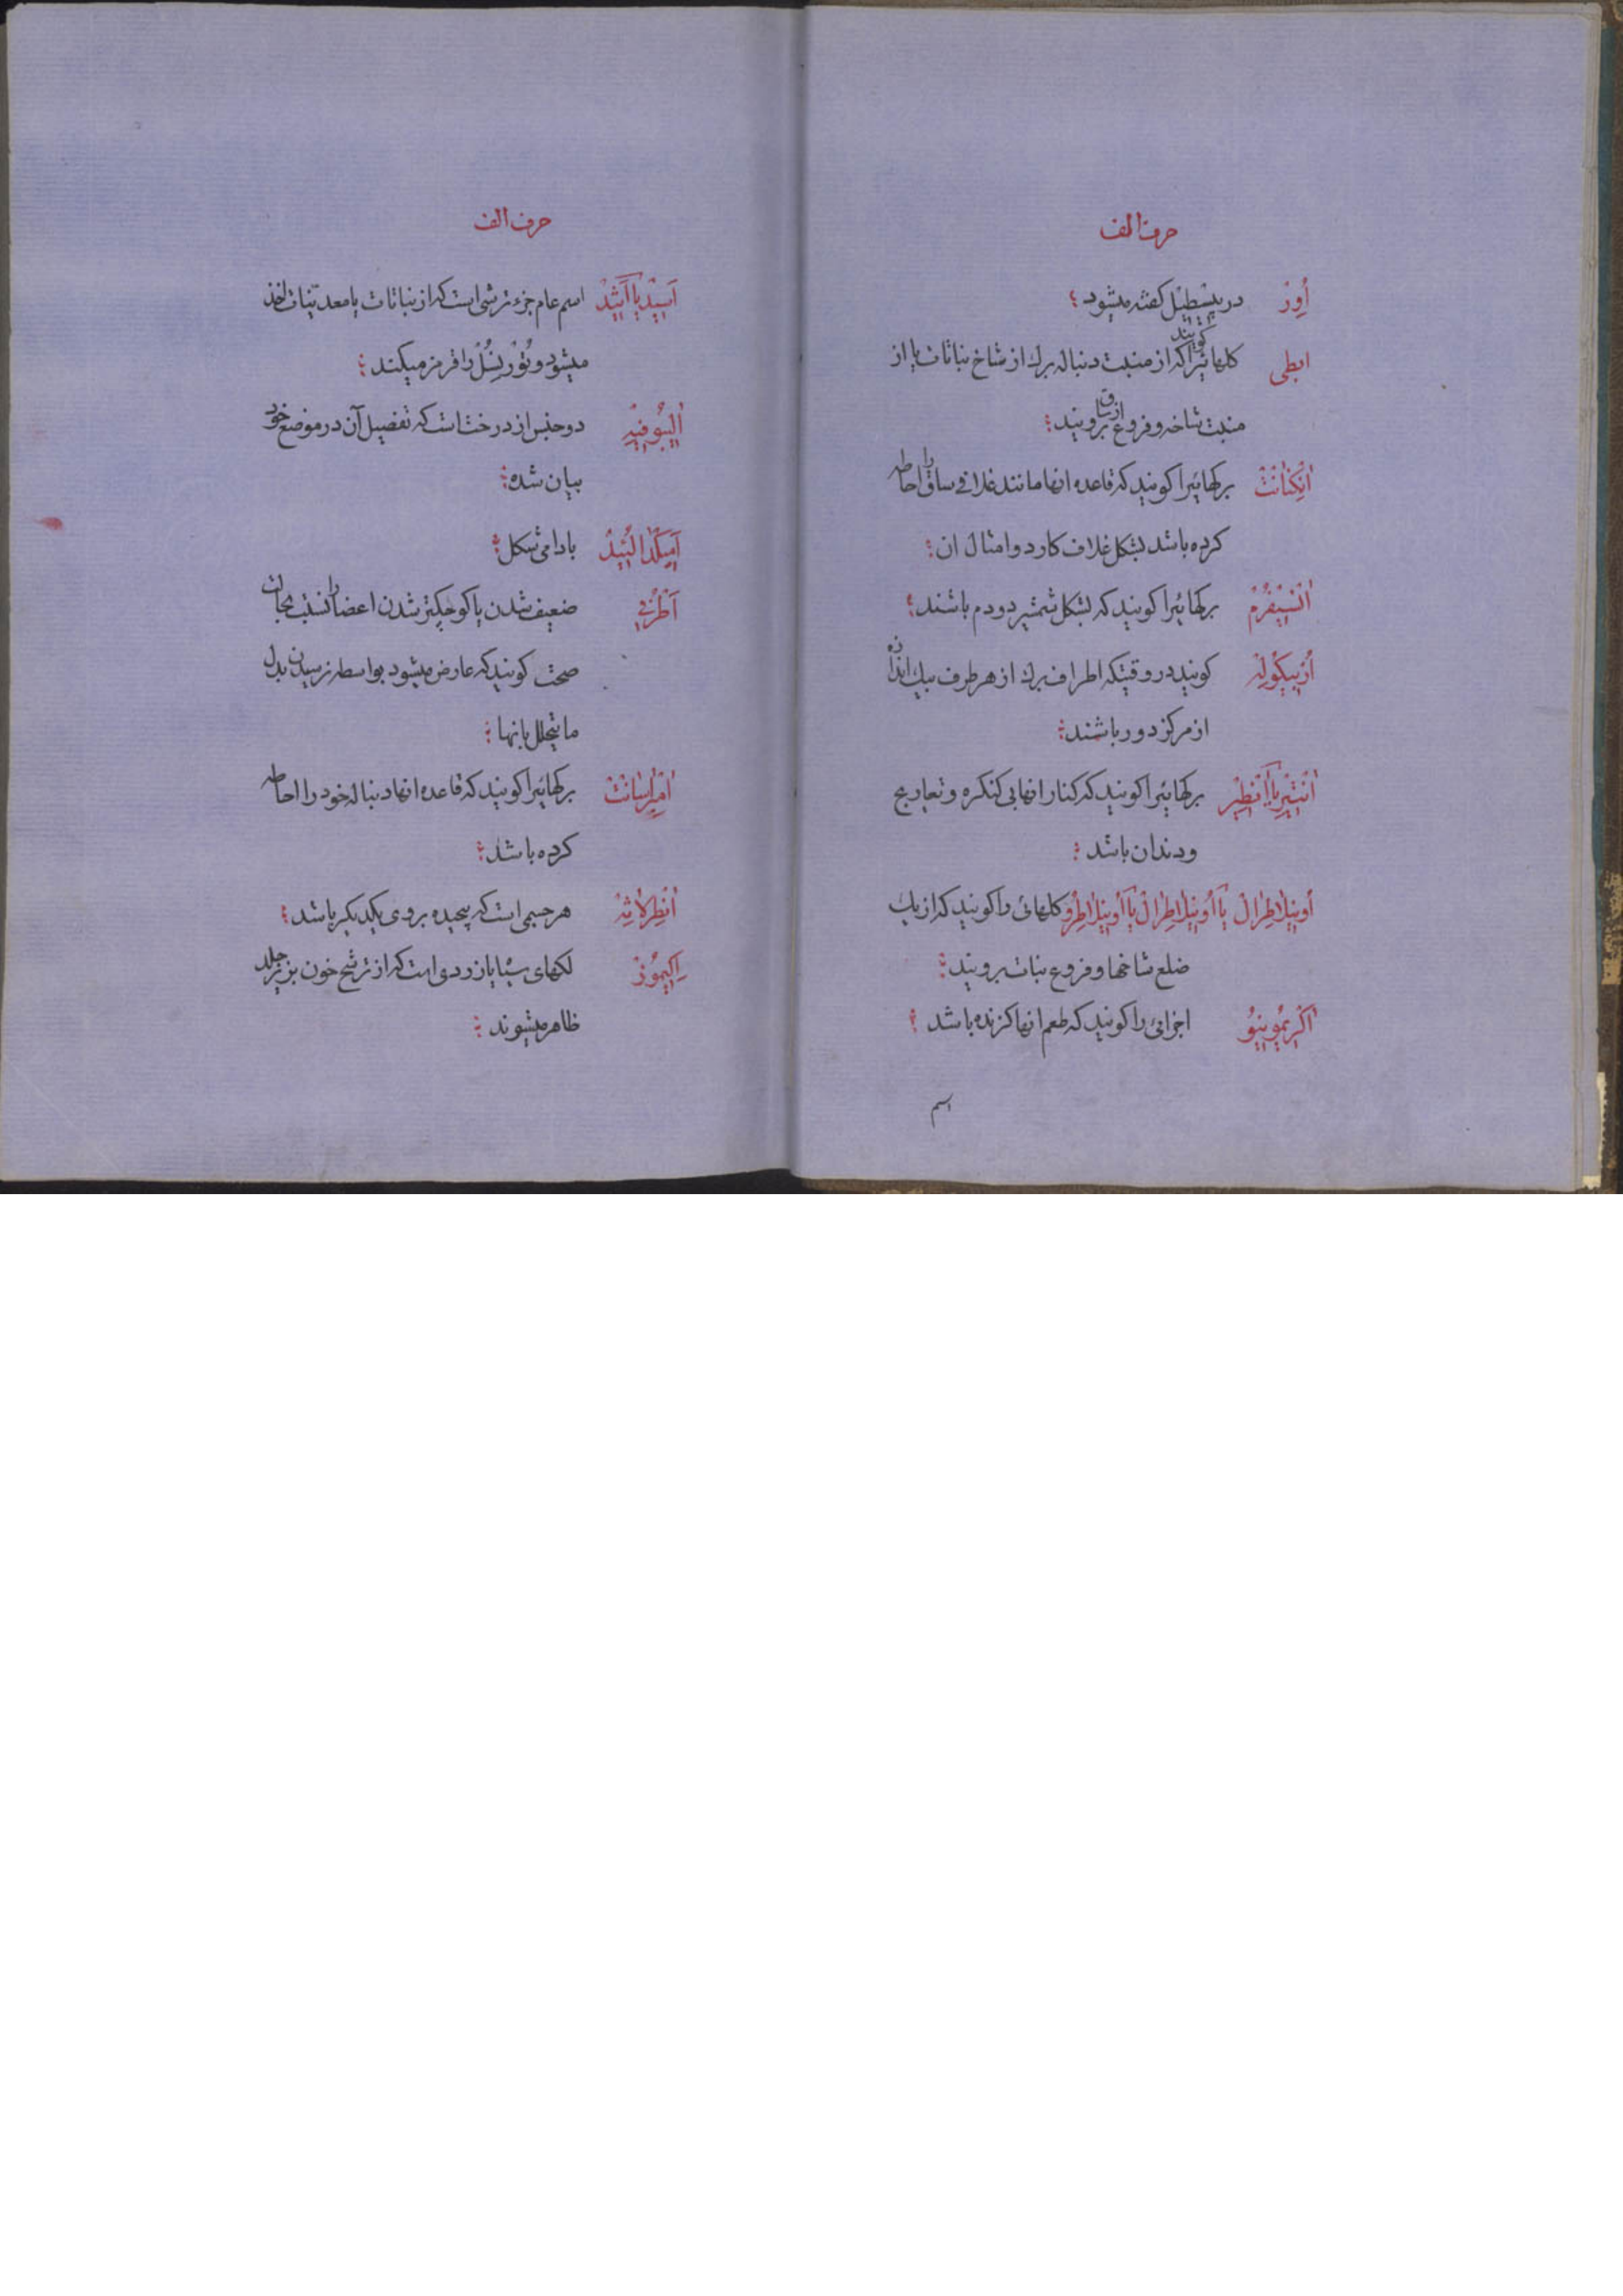 حرف الف
أوِرْ در پیسْطِیْل گفته میشود
ابطی گلهائیرا گویند که از منبت دنباله برك از شاخ نباتات یا از
منبت شاخه و فروع از ساق برویند
برگهائیرا گویند که قاعده انها مانند غلافی ساق را احاطه
کرده باشد بشکل غلاف کارد و امثال ان
برگهائیرا گویند که بشکل شمشیر دو دم باشند
گویند در وقتیکه اطراف برك از هر طرف بیك اندازه
از مرکز دور باشند
برگهائیرا گویند که کنار انها بی کنکره و تعاریج
و دندان باشد
أونیلاطِرال یا أونیلاطِرال یا أونیلاطِرو گلهائی را گویند که از یك
ضلع شاخها و فروع نبات برویند
اجزائی را گویند که طعم انها گزنده باشد
اسم
حرف الف
آسید یا آشید اسم عام جزء ترشی است که از نباتات یا معدنیات اخذ
میشود و تُوْرنِسُلْ را قرمز میکند
دو جنس از درخت است که تفصیل آن در موضع خود
بیان شده
آمیکدالئید بادامی شکل
آطرُفی ضعیف شدن یا کوچکتر شدن اعضا را نسبت بحالت
صحت گویند که عارض میشود بواسطه نرسیدن بدل
ما یتحلل بانها
برگهائیرا گویند که قاعده انها دنباله خود را احاطه
کرده باشد
هر جسمی است که پیچیده بروی یکدیگر باشد
اکیموز لکهای سیاه یا زردی است که از ترشح خون بزیر جلد
ظاهر میشوند